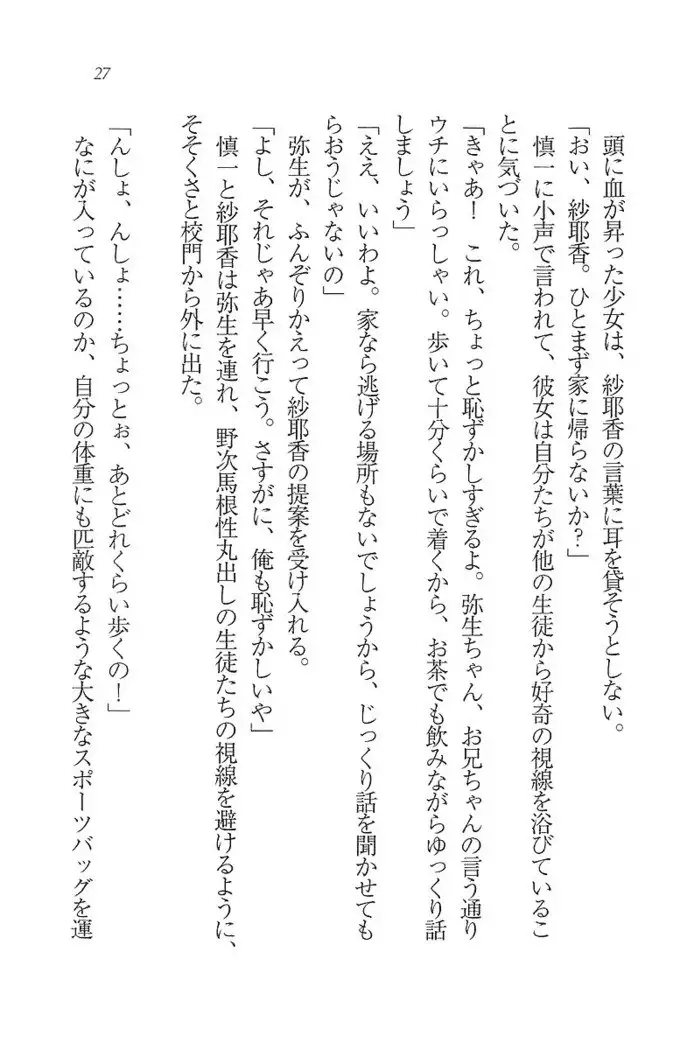 27
頭に血が昇った少女は、紗耶香の言葉に耳を貸そうとしない。
「おい、紗耶香。ひとまず家に帰らないか？」
慎一に小声で言われて、彼女は自分たちが他の生徒から好奇の視線を浴びているこ
とに気づいた。
「きゃあ！　これ、ちょっと恥ずかしすぎるよ。弥生ちゃん、お兄ちゃんの言う通り
ウチにいらっしゃい。歩いて十分くらいで着くから、お茶でも飲みながらゆっくり話
しましょう」
「ええ、いいわよ。家なら逃げる場所もないでしょうから、じっくり話を聞かせても
らおうじゃないの」
弥生が、ふんぞりかえって紗耶香の提案を受け入れる。
「よし、それじゃあ早く行こう。さすがに、俺も恥ずかしいや」
慎一と紗耶香は弥生を連れ、野次馬根性丸出しの生徒たちの視線を避けるように、
そそくさと校門から外に出た。
「んしょ、んしょ……ちょっとぉ、あとどれくらい歩くの！」
なにが入っているのか、自分の体重にも匹敵するような大きなスポーツバッグを運